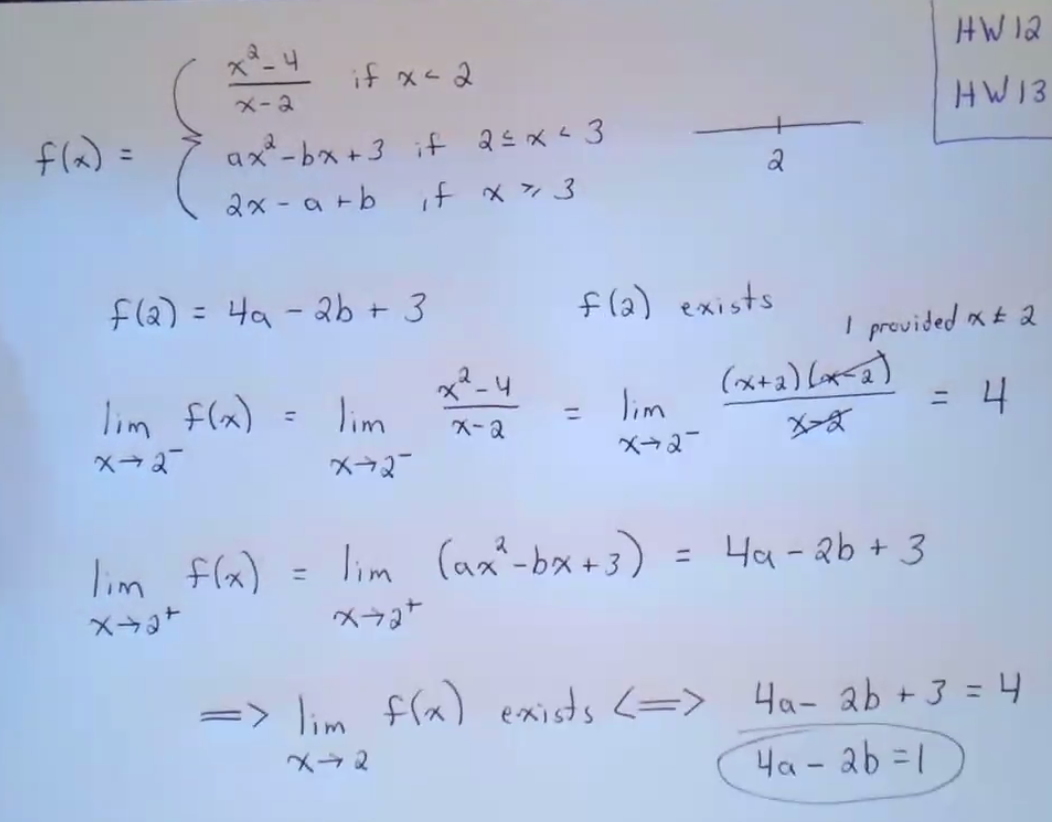 HW 12
HW 13
f(x) = { (x² - 4)/(x - 2) if x < 2
ax² - bx + 3 if 2 ≤ x < 3
2x - a + b if x ≥ 3
2
f(2) = 4a - 2b + 3 f(2) exists
1 provided x ≠ 2
lim x→2⁻ f(x) = lim x→2⁻ (x² - 4)/(x - 2) = lim x→2⁻ (x+2)(x-2)/(x-2) = 4
lim x→2⁺ f(x) = lim x→2⁺ (ax² - bx + 3) = 4a - 2b + 3
=> lim x→2 f(x) exists <=> 4a - 2b + 3 = 4
4a - 2b = 1